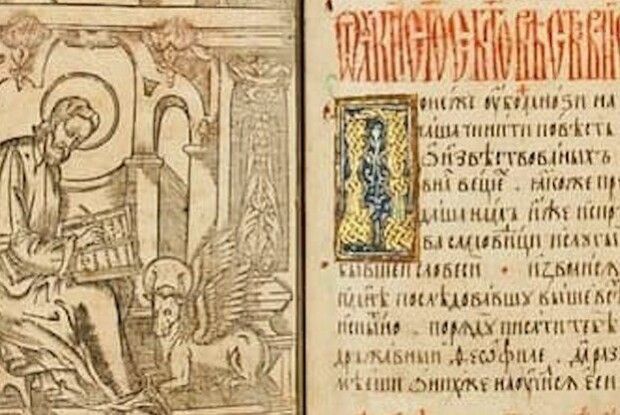 онеже ѹбо мнози на
чаша чинити повѣсть
ѡ извѣствованыхъ
вещие . ꙗкоже пр
даша намъ иже испе
ва самовидци и слꙋгы
бывшеи словеси · изволисѧ
и мнѣ послѣдовавшꙋ выше
испытно . порѧдꙋ писати тебѣ
державныи ѳеофиле , да раз
мѣеши ѡ нихже наꙋчилсѧ еси